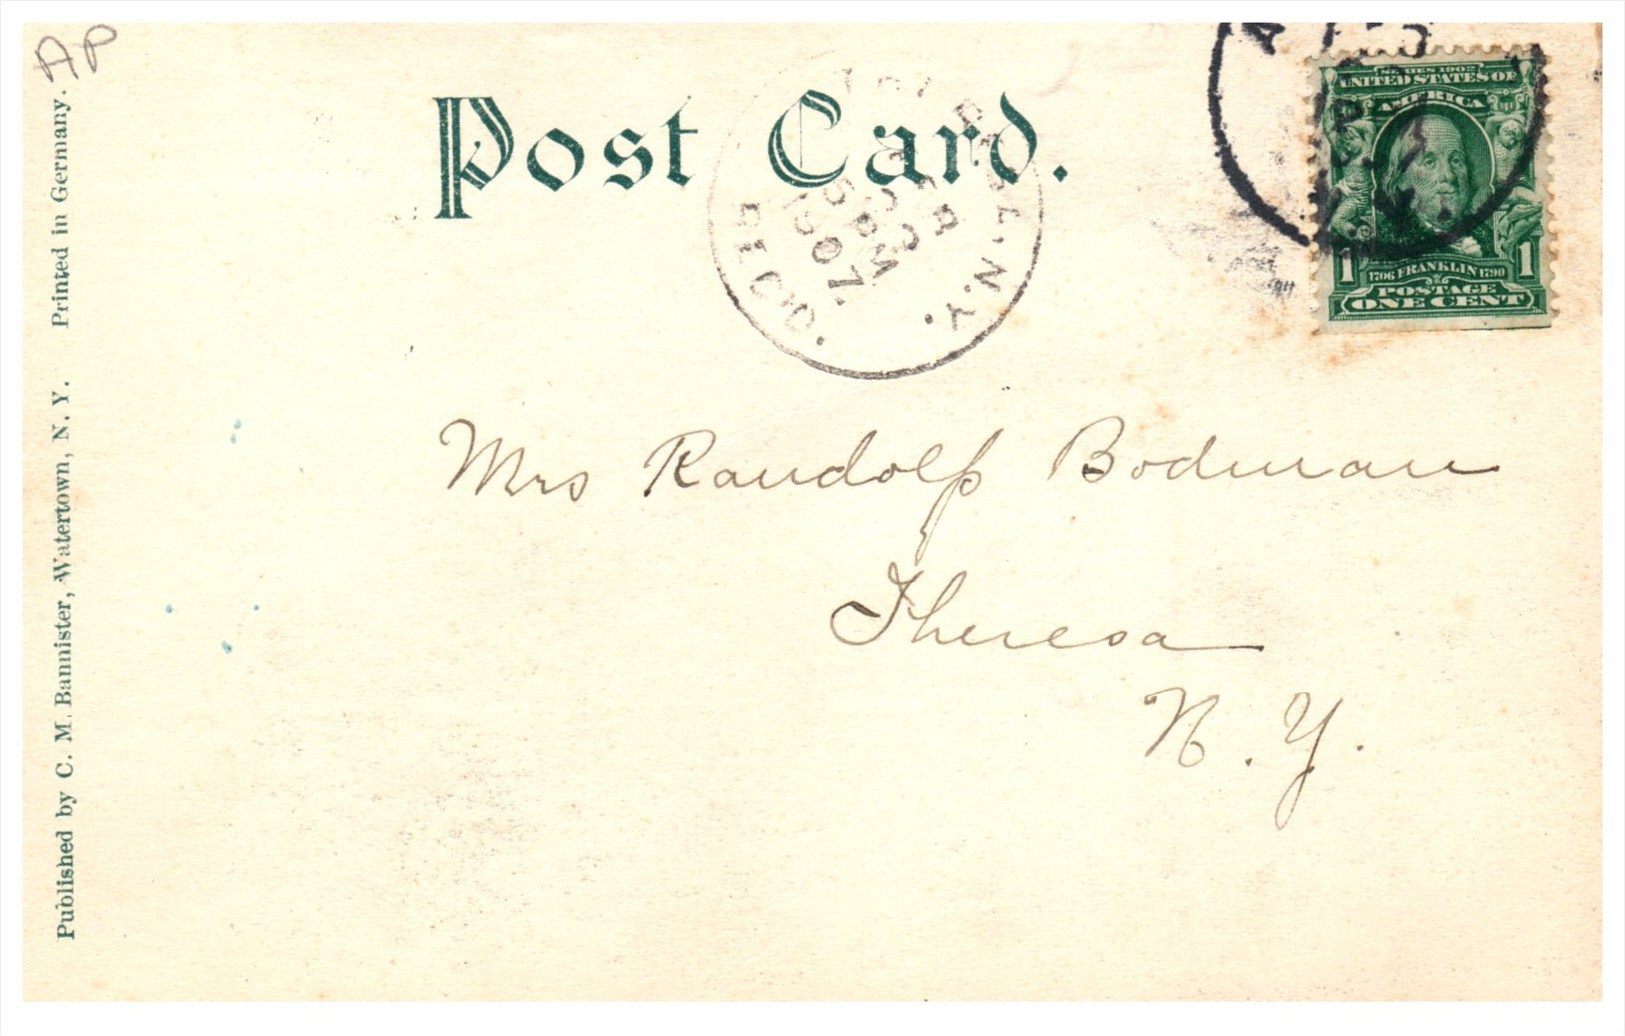 AP
Post Card.
SERIES 1902
UNITED STATES OF
AMERICA
1 1706 FRANKLIN 1790 1
POSTAGE
ONE CENT
N.Y.
5 PM
1907.
REC'D.
Mrs Randolf Bodman
Theresa
N. Y.
Published by C. M. Bannister, Watertown, N. Y. Printed in Germany.